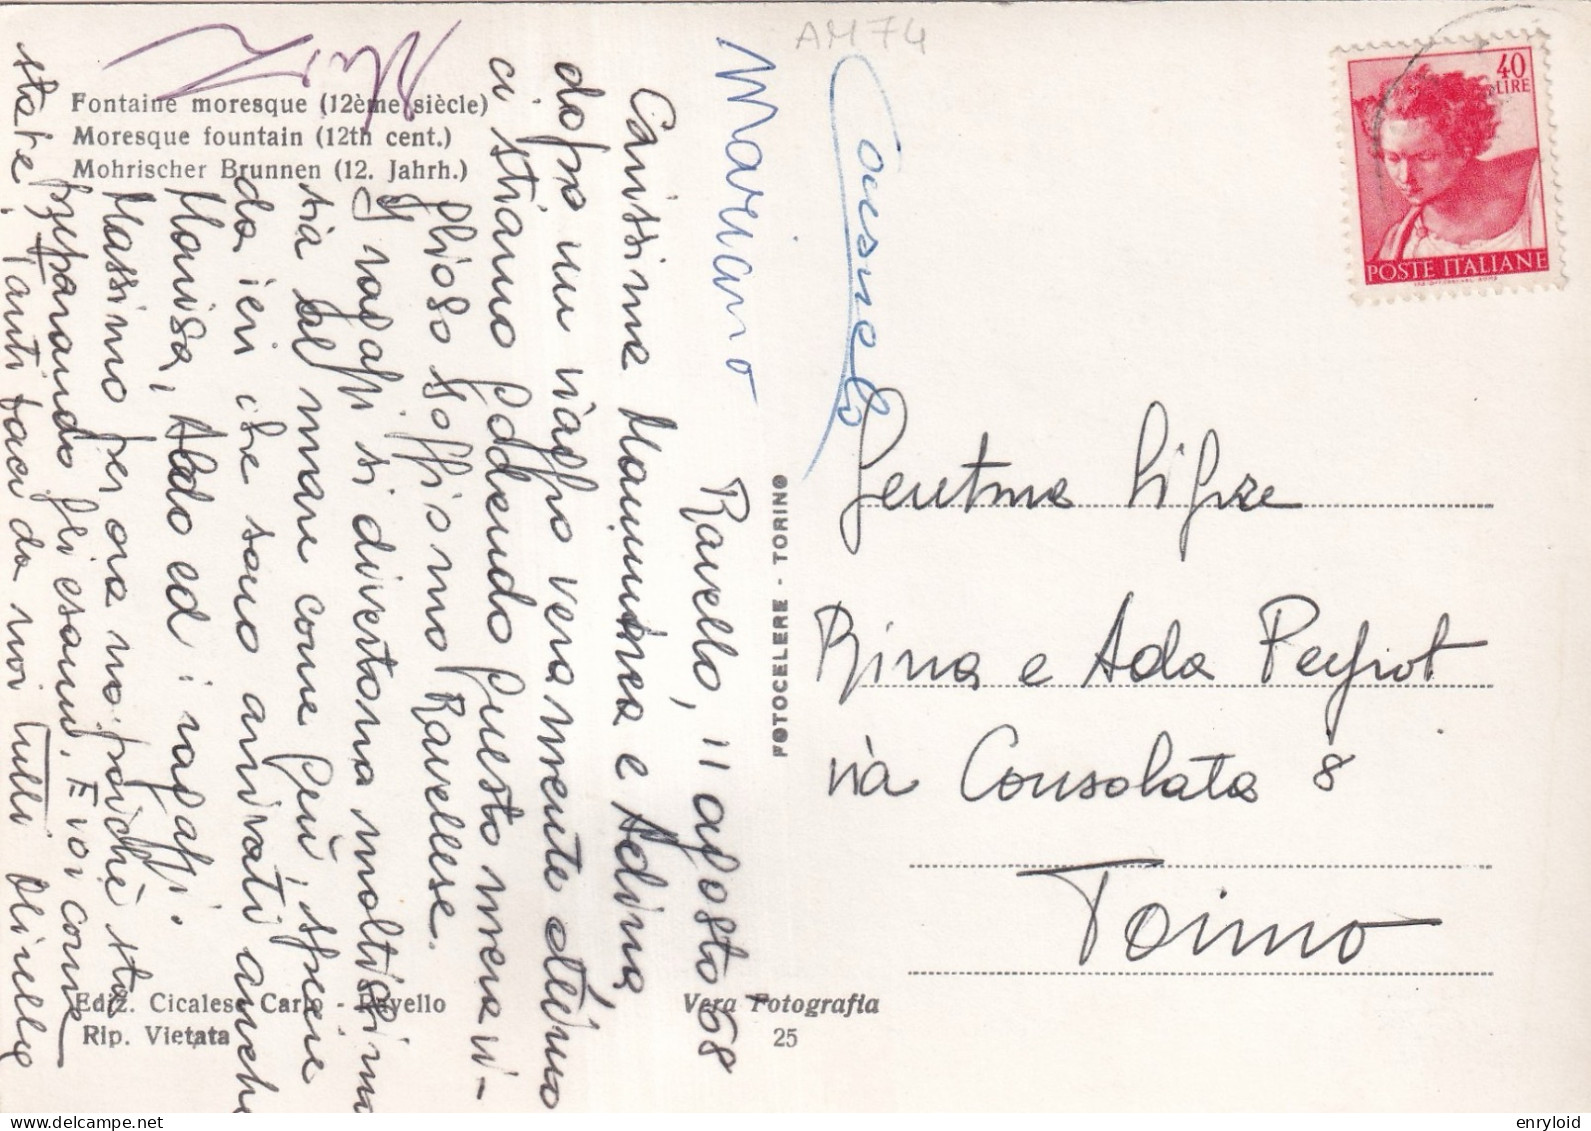 AM 74
40
LIRE
POSTE ITALIANE
Fontaine moresque (12ème siècle)
Moresque fountain (12th cent.)
Mohrischer Brunnen (12. Jahrh.)
Mariano
Consuelo
Ravello, 11 agosto '68
Carissime Mammina e Adina,
dopo un viaggio veramente ottimo
ci stiamo godendo questo mera vi-
glioso soggiorno Ravellese.
I ragazzi si divertono moltissimo
sia al mare come qui, specie
da ieri che sono arrivati anche
Marisa, Aldo ed i ragazzi.
Massimo per ora no poichè sta
preparando gli esami. E voi come
state? Tanti baci da noi tutti
FOTOCELERE - TORINO
Gent.me Sig.re
Rina e Ada Peyrot
via Consolata 8
Torino
Ediz. Cicalese Carlo - Ravello
Rip. Vietata
Vera Fotografia
25